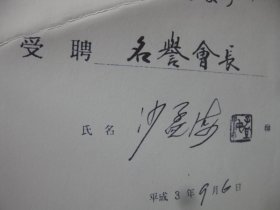 受聘 名譽會長
氏名 沙孟海 印
平成3年9月6日